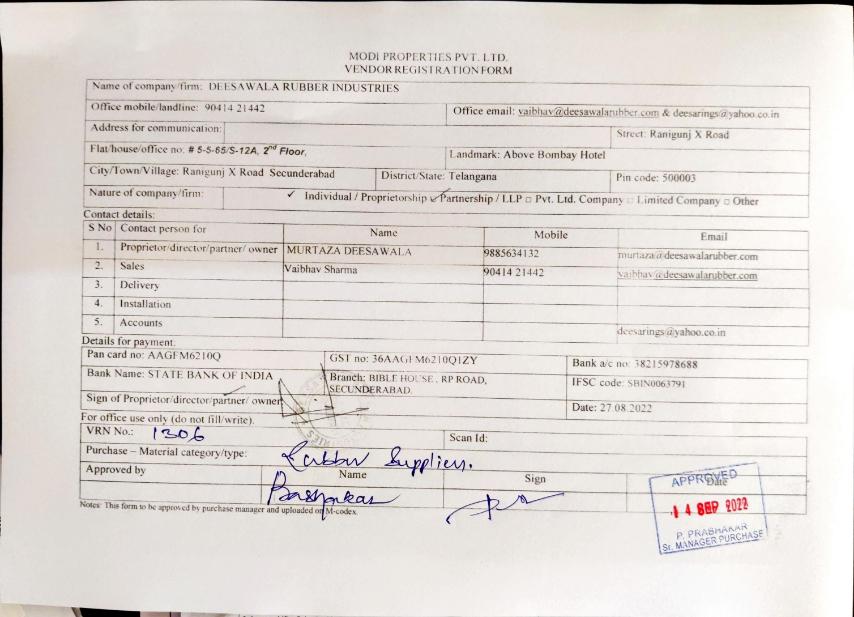 MODI PROPERTIES PVT. LTD.
VENDOR REGISTRATION FORM
Name of company/firm: DEESAWALA RUBBER INDUSTRIES
Office mobile/landline: 90414 21442 Office email: vaibhav@deesawalarubber.com & deesarings@yahoo.co.in
Address for communication: Street: Ranigunj X Road
Flat/house/office no: # 5-5-65/S-12A, 2nd Floor, Landmark: Above Bombay Hotel
City/Town/Village: Ranigunj X Road Secunderabad District/State: Telangana Pin code: 500003
Nature of company/firm: ✓ Individual / Proprietorship ✓ Partnership / LLP □ Pvt. Ltd. Company □ Limited Company □ Other
Contact details:
S No Contact person for Name Mobile Email
1. Proprietor/director/partner/ owner MURTAZA DEESAWALA 9885634132 murtaza@deesawalarubber.com
2. Sales Vaibhav Sharma 90414 21442 vaibhav@deesawalarubber.com
3. Delivery
4. Installation
5. Accounts deesarings@yahoo.co.in
Details for payment:
Pan card no: AAGFM6210Q GST no: 36AAGFM6210Q1ZY Bank a/c no: 38215978688
Bank Name: STATE BANK OF INDIA Branch: BIBLE HOUSE, RP ROAD, SECUNDERABAD. IFSC code: SBIN0063791
Sign of Proprietor/director/partner/ owner Date: 27.08.2022
For office use only (do not fill/write).
VRN No.: 1306 Scan Id:
Purchase – Material category/type: Rubber Suppliers.
Approved by Name Sign Date
APPROVED
14 SEP 2022
P. PRABHAKAR
Sr. MANAGER PURCHASE
Notes: This form to be approved by purchase manager and uploaded on M-codex.